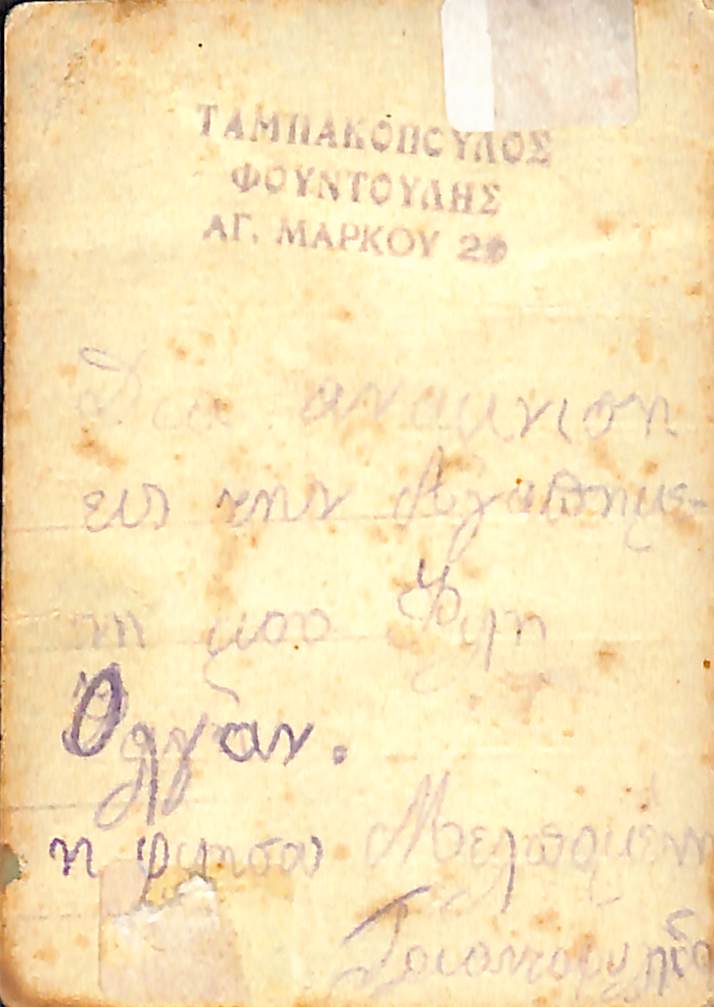 ΤΑΜΠΑΚΟΠΟΥΛΟΣ
ΦΟΥΝΤΟΥΛΗΣ
ΑΓ. ΜΑΡΚΟΥ 20
Δια αναμνιση
εις την Αγαπημε-
νη μου Φιλη
Ολγαν.
η φιλησου Μελπομενη